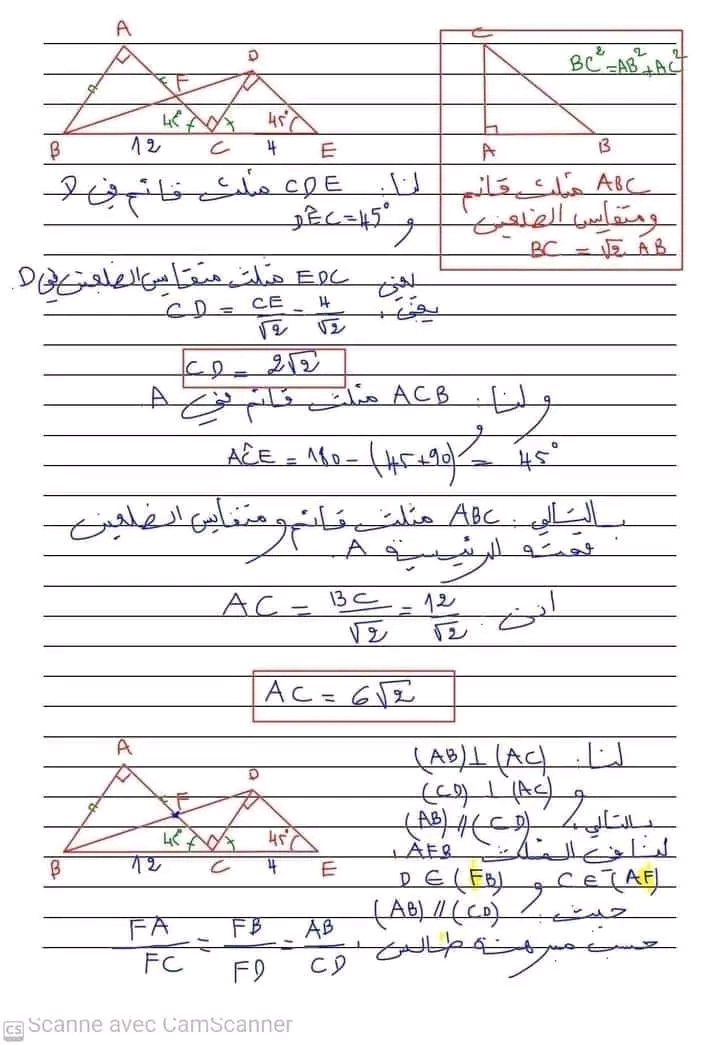 A
D
F
45° 45°
B 12 C 4 E
C
BC² = AB² + AC²
A B
ABC مثلث قائم
ومتقايس الضلعين
BC = √2 AB
لنا: CDE مثلث قائم في D
و DÊC = 45°
يعني EDC مثلث متقايس الضلعين في D.
يعني: CD = CE/√2 = 4/√2
CD = 2√2
ولنا: ACB مثلث قائم في A
و AĈE = 180 - (45+90) = 45°
بالتالي: ABC مثلث قائم ومتقايس الضلعين
قمته الرئيسية A.
اذن: AC = BC/√2 = 12/√2
AC = 6√2
A
D
F
45° 45°
B 12 C 4 E
لنا: (AB) ⊥ (AC)
و (CD) ⊥ (AC)
بالتالي: (AB) // (CD)
لنا في المثلث AFB:
C ∈ (AF) و D ∈ (FB)
حيث: (AB) // (CD)
حسب مبرهنة طالس: FA/FC = FB/FD = AB/CD
CS Scanné avec CamScanner